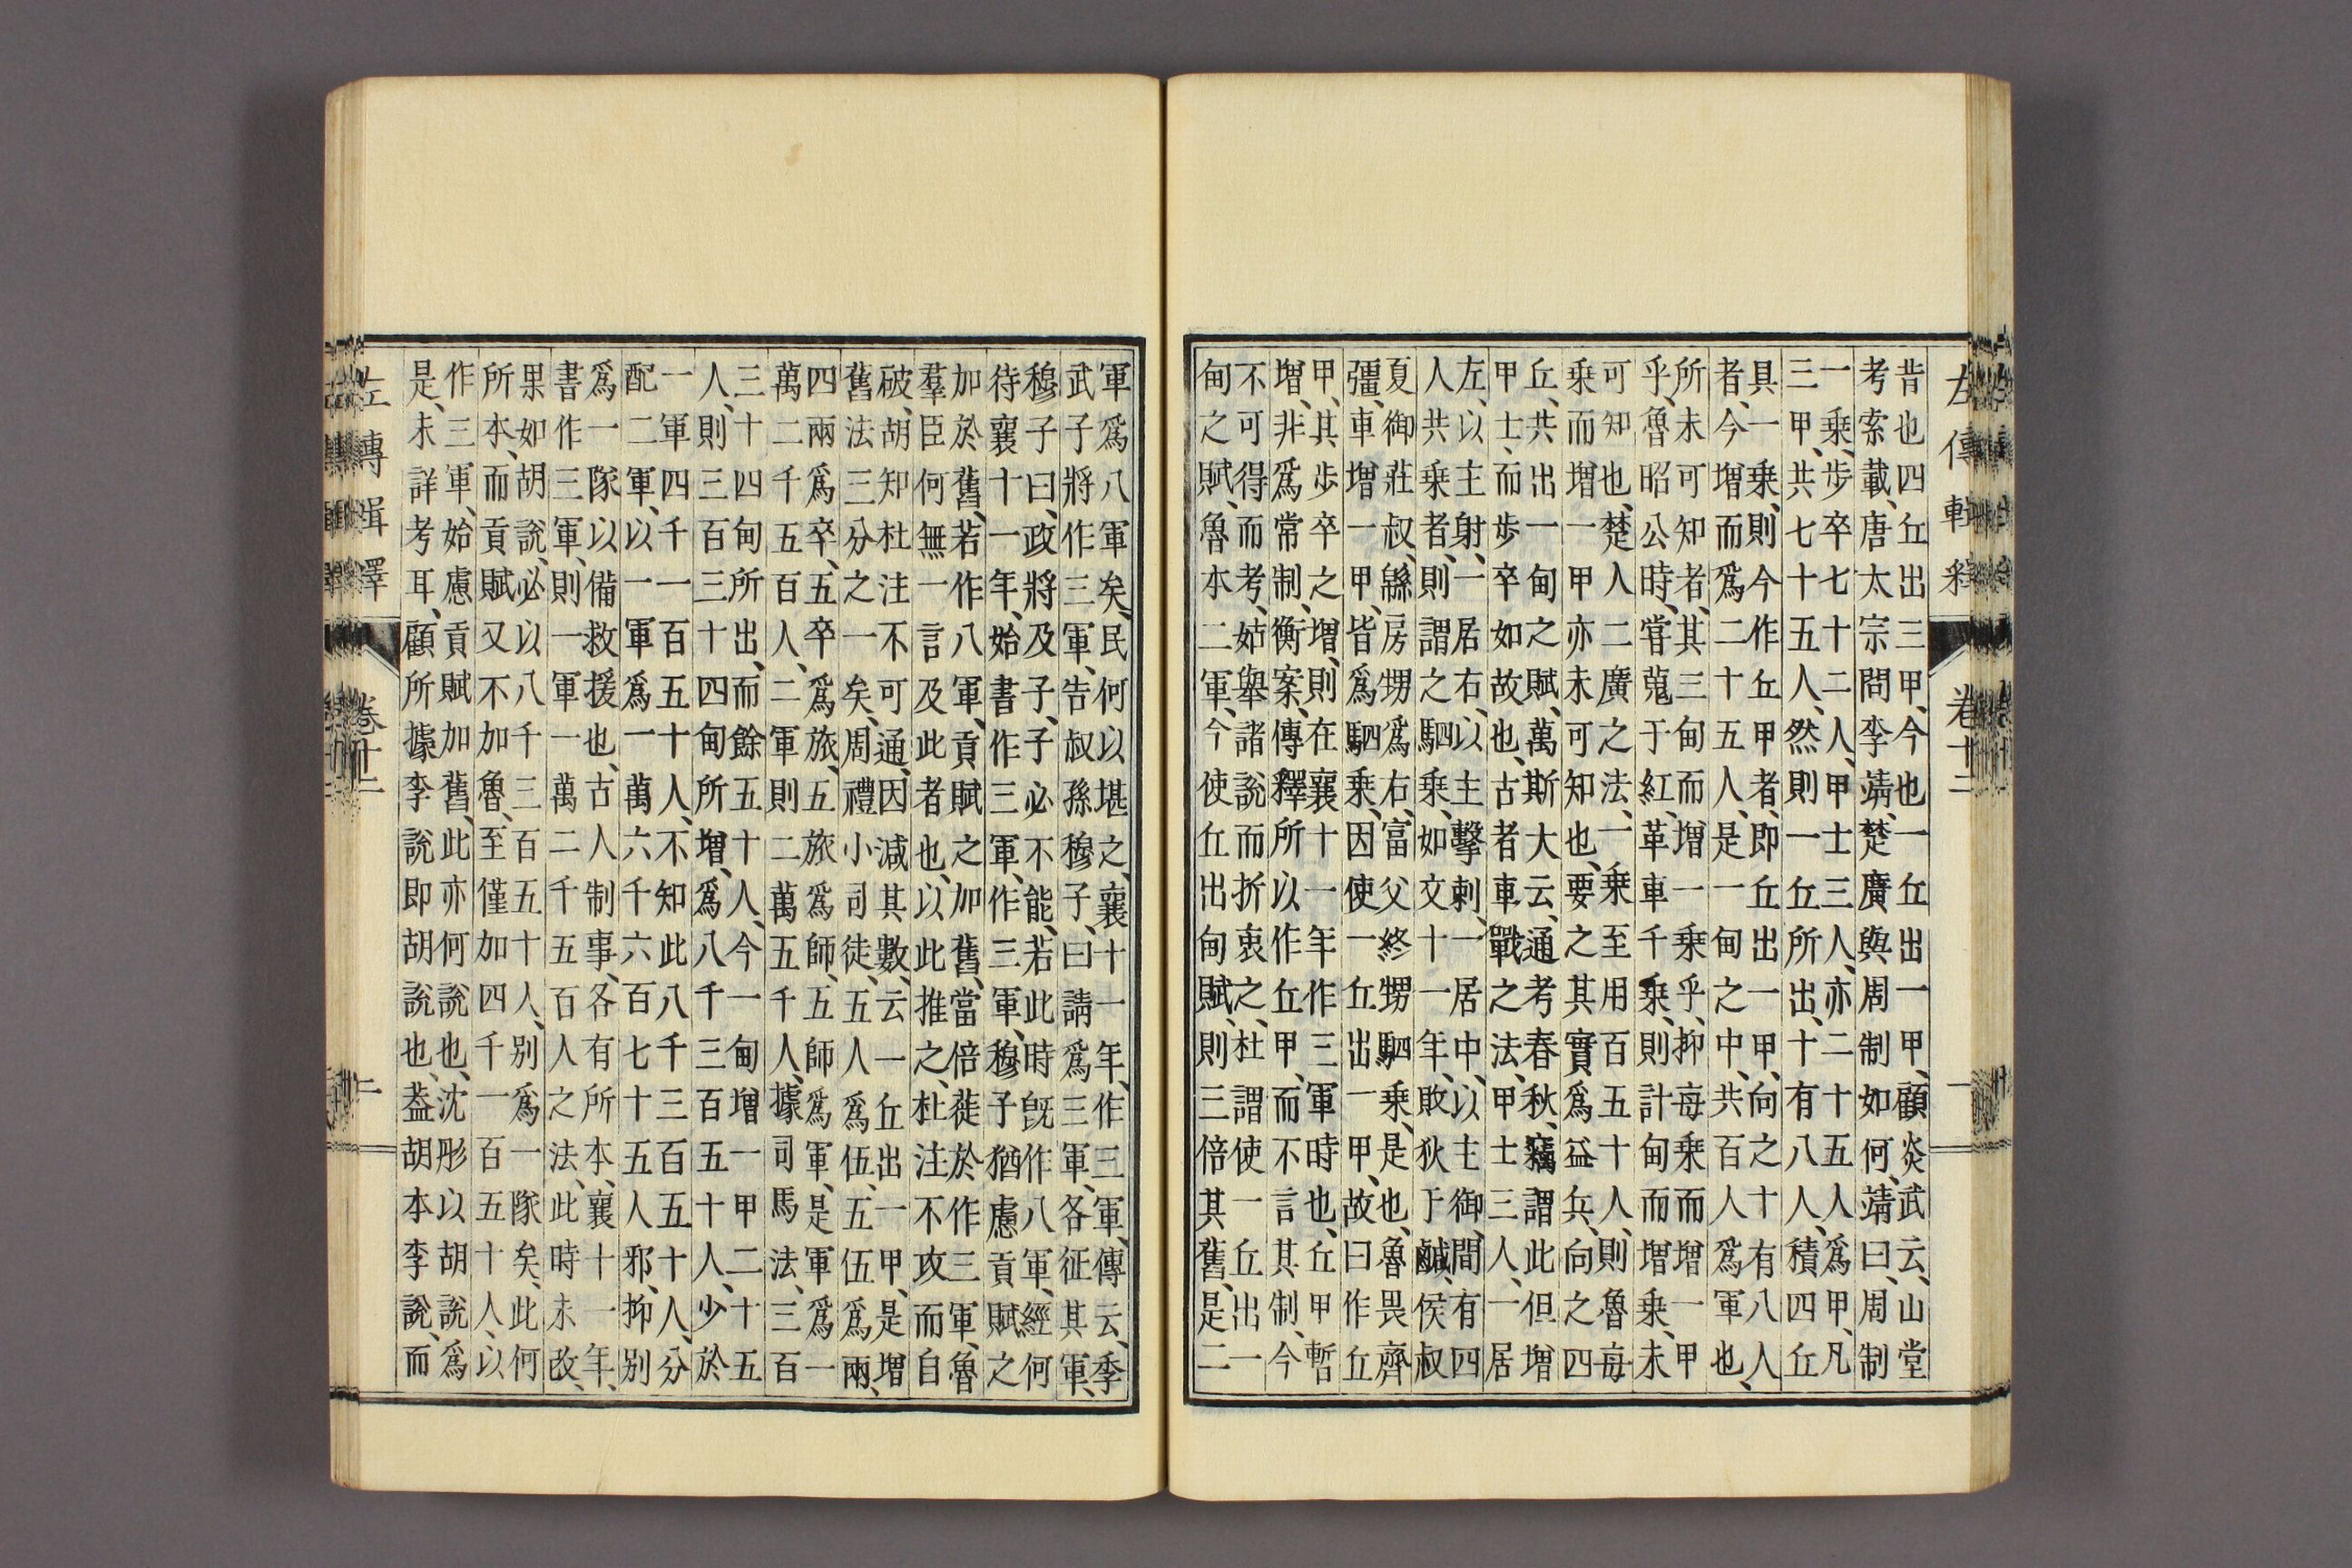 昔也四丘出三甲、今也一丘出一甲、顧炎武云、山堂
考索載、唐太宗問李靖、楚廣與周制如何、靖曰、周制
一乘、步卒七十二人、甲士三人、亦二十五人爲甲、凡
三甲、共七十五人、然則一丘所出、十有八人、積四丘
具一乘、則今作丘甲者、即丘出一甲、向之十有八人
者、今增而爲二十五人、是一甸之中、共百人爲軍也、
所未可知者、其三甸而增一乘乎、抑每乘而增一甲
乎、魯昭公時、嘗蒐于紅、革車千乘、則計甸而增乘、未
可知也、楚人二廣之法、一乘至用百五十人、則魯每
乘而增一甲亦未可知也、要之其實爲益兵、向之四
丘、共出一甸之賦、萬斯大云、通考春秋、竊謂此但增
甲士、而步卒如故也、古者車戰之法、甲士三人、一居
左、以主射、一居右、以主擊刺、一居中、以主御、間有四
人共乘者、則謂之駟乘、如文十一年、敗狄于鹹、侯叔
夏御莊叔、緜房甥爲右、富父終甥駟乘、是也、魯畏齊
彊、車增一甲、皆爲駟乘、因使一丘出一甲、故曰作丘
甲、其步卒之增、則在襄十一年作三軍時也、丘甲暫
增、非爲常制、衡案、傳釋所以作丘甲、而不言其制、今
不可得而考、姑舉諸說而折衷之、杜謂使一丘出一
甸之賦、魯本二軍、今使丘出甸賦、則三倍其舊、是二
左傳輯釋 卷十二 一
軍爲八軍矣、民何以堪之、襄十一年、作三軍、傳云、季
武子將作三軍、告叔孫穆子、曰、請爲三軍、各征其軍、
穆子曰、政將及子、子必不能、若此時既作八軍、經何
待襄十一年、始書作三軍、作三軍、穆子猶慮貢賦之
加於舊、若作八軍、貢賦之加舊、當倍蓰於作三軍、魯
羣臣何無一言及此者也、以此推之、杜注不攻而自
破、胡知杜注不可通、因減其數、云一丘出一甲、是增
舊法三分之一矣、周禮小司徒、五人爲伍、五伍爲兩、
四兩爲卒、五卒爲旅、五旅爲師、五師爲軍、是軍爲一
萬二千五百人、二軍則二萬五千人、據司馬法、三百
三十四甸所出、而餘五十人、今一甸增一甲二十五
人、則三百三十四甸所增、爲八千三百五十人、少於
一軍四千一百五十人、不知此八千三百五十人、分
配二軍、以一軍爲一萬六千六百七十五人邪、抑別
爲一隊以備救援也、古人制事、各有所本、襄十一年、
書作三軍、則一軍一萬二千五百人之法、此時未改、
果如胡說、必以八千三百五十人、別爲一隊矣、此何
所本、而貢賦又不加魯、至僅加四千一百五十人、以
作三軍、始慮貢賦加舊、此亦何說也、沈彤以胡說爲
是、未詳考耳、顧所據李說即胡說也、葢胡本李說、而
左傳輯釋 卷十二 二